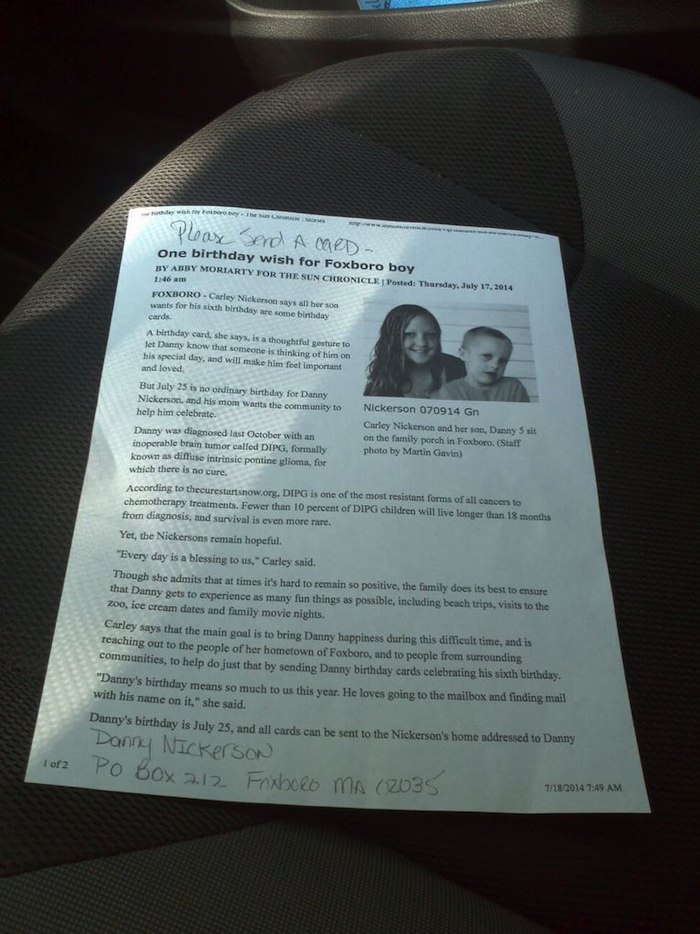 birthday wish for Foxboro boy - The Sun Chronicle : Stories
Please Send A CARD -
One birthday wish for Foxboro boy
BY ABBY MORIARTY FOR THE SUN CHRONICLE | Posted: Thursday, July 17, 2014
1:46 am
FOXBORO - Carley Nickerson says all her son
wants for his sixth birthday are some birthday
cards.
A birthday card, she says, is a thoughtful gesture to
let Danny know that someone is thinking of him on
his special day, and will make him feel important
and loved.
But July 25 is no ordinary birthday for Danny
Nickerson, and his mom wants the community to
help him celebrate.
Danny was diagnosed last October with an
inoperable brain tumor called DIPG, formally
known as diffuse intrinsic pontine glioma, for
which there is no cure.
Nickerson 070914 Gn
Carley Nickerson and her son, Danny 5 sit
on the family porch in Foxboro. (Staff
photo by Martin Gavin)
According to thecurestartsnow.org, DIPG is one of the most resistant forms of all cancers to
chemotherapy treatments. Fewer than 10 percent of DIPG children will live longer than 18 months
from diagnosis, and survival is even more rare.
Yet, the Nickersons remain hopeful.
"Every day is a blessing to us," Carley said.
Though she admits that at times it's hard to remain so positive, the family does its best to ensure
that Danny gets to experience as many fun things as possible, including beach trips, visits to the
zoo, ice cream dates and family movie nights.
Carley says that the main goal is to bring Danny happiness during this difficult time, and is
reaching out to the people of her hometown of Foxboro, and to people from surrounding
communities, to help do just that by sending Danny birthday cards celebrating his sixth birthday.
"Danny's birthday means so much to us this year. He loves going to the mailbox and finding mail
with his name on it," she said.
Danny's birthday is July 25, and all cards can be sent to the Nickerson's home addressed to Danny
Danny Nickerson
PO Box 212 Foxboro MA 02035
1 of 2
7/18/2014 7:49 AM